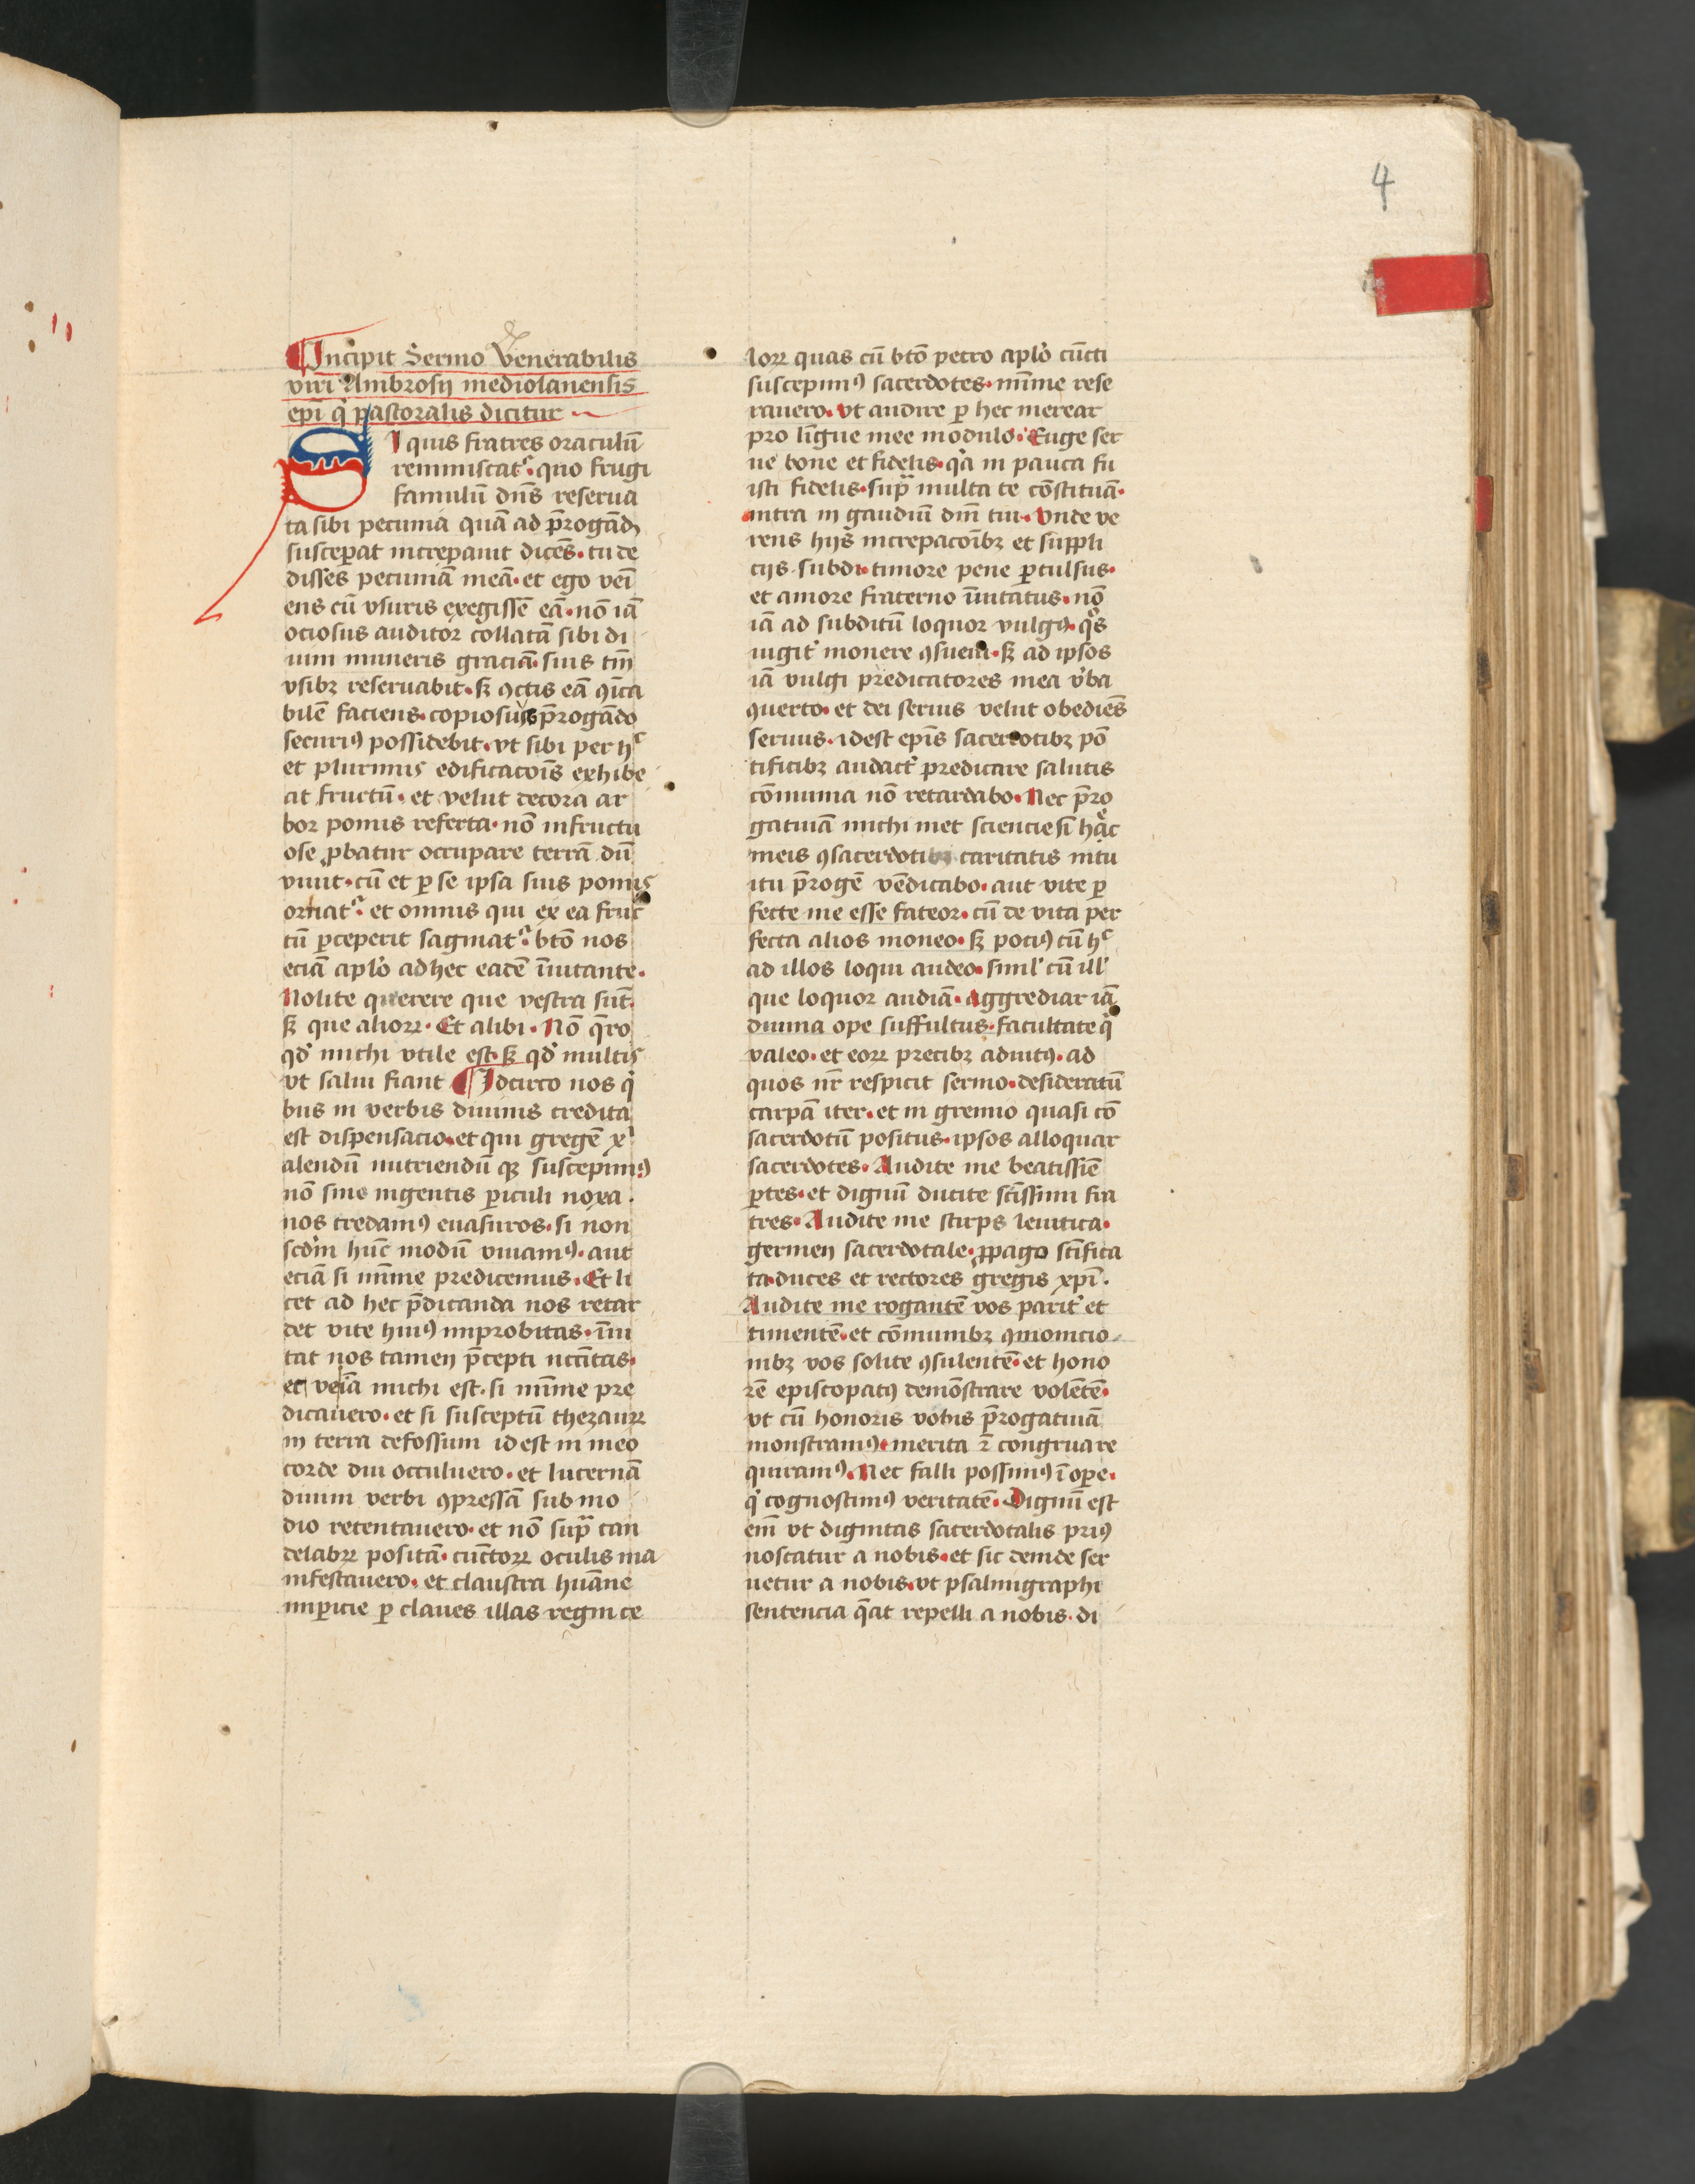 4
Incipit Sermo Venerabilis
viri Ambrosij mediolanensis
epī q̇ pastoralis dicitur
SI quis fratres oraculū
reminiscatᷣ · quo frugi
famulū dn̄s reserua
ta sibi pecunia quā ad p̄rogādꝫ
susceꝑat increpauit dicēs · tu de
disses pecuniā meā · et ego veī
ens cū vsuris exegissē eā · nō iā
ociosus auditor collatā sibi di
uini muneris graciā suis tm̄
vsibꝫ reseruabit · sꝫ ꝯctis eā ꝯīca
bilē faciens · copiosiꝰ p̄rogādo
securiꝰ possidebit · vt sibi per hᶜ
et plurimis edificacoīs exhibe
at fructū · et velut decora ar
bor pomis referta · nō infructu
ose ꝓbatur occupare terrā dū
viuit · cū et ꝑ se ipsa suis pomis
ornatᷣ · et omnis qui ex ea fruc
tū ꝑceperit saginatᷣ · btō nos
eciā aplo̓ ad hec eadē īuitante ·
Nolite querere que vestra sūt
sꝫ que alioꝝ · Et alibi · Nō q̄ro
qd̓ michi vtile est · sꝫ qd̓ multis
vt salui fiant ¶ Idcirco nos q̇
bus in verbis diuinis credita
est dispensacio · et qui gregē xⁱ
alendū nutriendū qꝫ suscepimꝰ
nō sine ingentis ꝑiculi noxa ·
nos credamꝰ euasuros · si non
scdm̄ hūc modū viuamꝰ · aut
eciā si mīme predicemus · Et li
cet ad hec p̄dicanda nos retar
det vite huiꝰ improbitas · īui
tat nos tamen p̄cepti nccītas ·
et veīa michi est · si mīme pre
dicauero · et si susceptū thezauꝝ
in terra defossum id est in meo
corde diu occuluero · et lucernā
diuini verbi ꝯpressā sub mo
dio retentauero · et nō supᵃ can
delabꝝ positā · cūctoꝝ oculis ma
nifestauero · et claustra hūane
imꝑicie ꝑ claues illas regni ce
loꝝ quas cū btō petro aplo̓ cūcti
suscepimꝰ sacerdotes · mīme rese
rauero · vt audire ꝑ hec merear
pro līgue mee modulo · Euge ser
ue bone et fidelis · qꝛ in pauca fu
isti fidelis · supᵃ multa te cōstituā ·
intra in gaudiū dn̄i tui · Vnde ve
rens hijs increpacoībꝫ et suppli
cijs subdi · timore pene ꝑculsus ·
et amore fraterno īuitatus · nō
iā ad subditū loquor vulgꝰ · q̊s
iugit᷑ monere ꝯsueui · sꝫ ad ipsos
iā vulgi predicatores mea v̓ba
ꝯuerto · et dei seruis velut obediēs
seruus · id est epīs sacerdotibꝫ pō
tificibꝫ audact᷑ predicare salutis
cōmunia nō retardabo · Nec p̄ro
gatiuā michi met sciencie si hāc
meis ꝯsacerdotibꝫ caritatis intu
itu p̄rogē vēdicabo · aut vite ꝑ
fecte me esse fateor · cū de vita per
fecta alios moneo · sꝫ pociꝰ cū hᶜ
ad illos loqui audeo · simil̓ cū ill̓
que loquor audiā · Aggrediar iā
diuina ope suffultus · facultate q̇
valeo · et eoꝝ precibꝫ adiutꝰ · ad
quos nr̄ respicit sermo · desideratū
carpā iter · et in gremio quasi cō
sacerdotū positus · ipsos alloquar
sacerdotes · Audite me beatissīe
ꝑtes · et dignū ducite sc̄issimi fra
tres · Audite me stirps leuitica ·
germen sacerdotale · ꝓpago sc̄ifica
ta · duces et rectores gregis xpī ·
Audite me rogantē vos parit᷑ et
timentē · et cōmunibꝫ ꝯmonicio
nibꝫ vos solite ꝯsulentē · et hono
rē episcopatꝰ demōstrare volētē ·
vt cū honoris vobis p̄rogatiuā
monstramꝰ · merita ꝛ̄ congruare
quiramꝰ · Nec falli possimꝰ ī ope ·
q̇ cognoscimꝰ veritatē · Dignū est
eni̅ vt dignitas sacerdotalis priꝰ
noscatur a nobis · et sic deinde ser
uetur a nobis · vt psalmigraphi
sentencia q̄at repelli a nobis · di